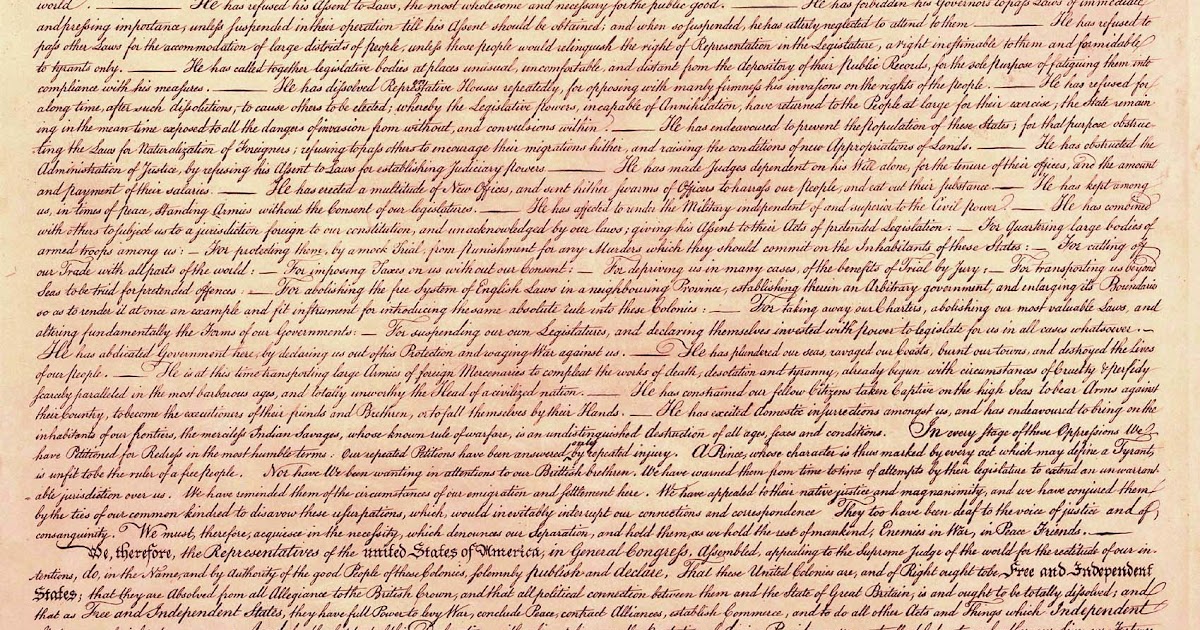 world . ——— He has refused his Assent to Laws, the most wholesome and necessary for the public good. ——— He has forbidden his Governors to pass Laws of immediate
and pressing importance, unless suspended in their operation till his Assent should be obtained; and when so suspended, he has utterly neglected to attend to them ——— He has refused to
pass other Laws for the accommodation of large districts of people, unless those people would relinquish the right of Representation in the Legislature, a right inestimable to them and formidable
to tyrants only. ——— He has called together legislative bodies at places unusual, uncomfortable, and distant from the depository of their public Records, for the sole purpose of fatiguing them into
compliance with his measures. ——— He has dissolved Representative Houses repeatedly, for opposing with manly firmness his invasions on the rights of the people. ——— He has refused for
a long time, after such dissolutions, to cause others to be elected; whereby the Legislative powers, incapable of Annihilation, have returned to the People at large for their exercise; the State remain
ing in the mean time exposed to all the dangers of invasion from without, and convulsions within. ——— He has endeavoured to prevent the population of these States; for that purpose obstruc-
ting the Laws for Naturalization of Foreigners; refusing to pass others to encourage their migrations hither, and raising the conditions of new Appropriations of Lands. ——— He has obstructed the
Administration of Justice, by refusing his Assent to Laws for establishing Judiciary powers ——— He has made Judges dependent on his Will alone, for the tenure of their offices, and the amount
and payment of their salaries. ——— He has erected a multitude of New Offices, and sent hither swarms of Officers to harrass our people, and eat out their substance. — He has kept among
us, in times of peace, Standing Armies without the Consent of our legislatures. ——— He has affected to render the Military independent of and superior to the Civil power. ——— He has combined
with others to subject us to a jurisdiction foreign to our constitution, and unacknowledged by our laws; giving his Assent to their Acts of pretended Legislation: — For Quartering large bodies of
armed troops among us: — For protecting them, by a mock Trial, from punishment for any Murders which they should commit on the Inhabitants of these States: — For cutting off
our Trade with all parts of the world: — For imposing Taxes on us without our Consent: — For depriving us in many cases, of the benefits of Trial by Jury: — For transporting us beyond
Seas to be tried for pretended offences — For abolishing the free System of English Laws in a neighbouring Province, establishing therein an Arbitrary government, and enlarging its Boundaries
so as to render it at once an example and fit instrument for introducing the same absolute rule into these Colonies: — For taking away our Charters, abolishing our most valuable Laws, and
altering fundamentally the Forms of our Governments: — For suspending our own Legislatures, and declaring themselves invested with power to legislate for us in all cases whatsoever. —
He has abdicated Government here, by declaring us out of his Protection and waging War against us. ——— He has plundered our seas, ravaged our Coasts, burnt our towns, and destroyed the Lives
of our people. ——— He is at this time transporting large Armies of foreign Mercenaries to compleat the works of death, desolation and tyranny, already begun with circumstances of Cruelty & perfidy
scarcely paralleled in the most barbarous ages, and totally unworthy the Head of a civilized nation. ——— He has constrained our fellow Citizens taken Captive on the high Seas to bear Arms against
their Country, to become the executioners of their friends and Brethren, or to fall themselves by their Hands. ——— He has excited domestic insurrections amongst us, and has endeavoured to bring on the
inhabitants of our frontiers, the merciless Indian Savages, whose known rule of warfare, is an undistinguished destruction of all ages, sexes and conditions. In every stage of these Oppressions We
have Petitioned for Redress in the most humble terms: Our repeated Petitions have been answered only by repeated injury. A Prince, whose character is thus marked by every act which may define a Tyrant,
is unfit to be the ruler of a free people. Nor have We been wanting in attentions to our Brittish brethren. We have warned them from time to time of attempts by their legislature to extend an unwarrant-
able jurisdiction over us. We have reminded them of the circumstances of our emigration and settlement here. We have appealed to their native justice and magnanimity, and we have conjured them
by the ties of our common kindred to disavow these usurpations, which, would inevitably interrupt our connections and correspondence They too have been deaf to the voice of justice and of
consanguinity. We must, therefore, acquiesce in the necessity, which denounces our Separation, and hold them, as we hold the rest of mankind, Enemies in War, in Peace Friends. ———
We, therefore, the Representatives of the united States of America, in General Congress, Assembled, appealing to the Supreme Judge of the world for the rectitude of our in-
tentions, do, in the Name, and by Authority of the good People of these Colonies, solemnly publish and declare, That these United Colonies are, and of Right ought to be Free and Independent
States; that they are Absolved from all Allegiance to the British Crown, and that all political connection between them and the State of Great Britain, is and ought to be totally dissolved; and
that as Free and Independent States, they have full Power to levy War, conclude Peace, contract Alliances, establish Commerce, and to do all other Acts and Things which Independent